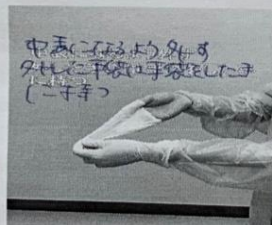 中表になるよう外す
外した手袋は手袋をした手
に持つ